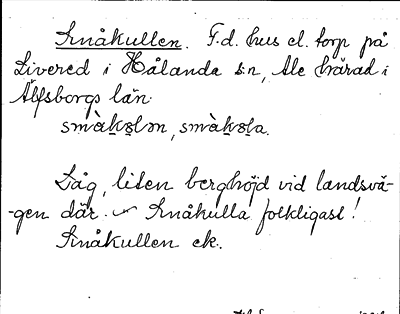 Småkullen. F.d. hus el. torp på
Livered i Hålanda s:n, Ale härad i
Älfsborgs län.
smàkɷlən, smàkɷla.
Låg, liten berghöjd vid landsvä-
-gen där. Småkulla folkligast!
Småkullen ek.